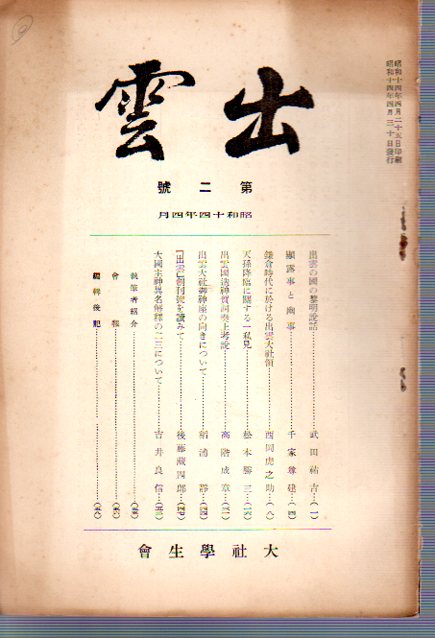 昭和十四年四月二十五日印刷
昭和十四年四月三十日發行
出雲
第二號
昭和十四年四月
出雲の國の黎明説話……武田祐吉…(一)
顯露事と幽事……千家尊建…(四)
鎌倉時代に於ける出雲大社領……西岡虎之助…(八)
天孫降臨に關する一私見……松本勝三
出雲國造神賀詞奏上考説……高階成章
出雲大社御神座の向きについて……稻浦靜
『出雲』創刊號を讀みて……後藤藏四郎
大國主神異名解釋の二三について……吉井良信
執筆者紹介
會報
編輯後記
大社學生會